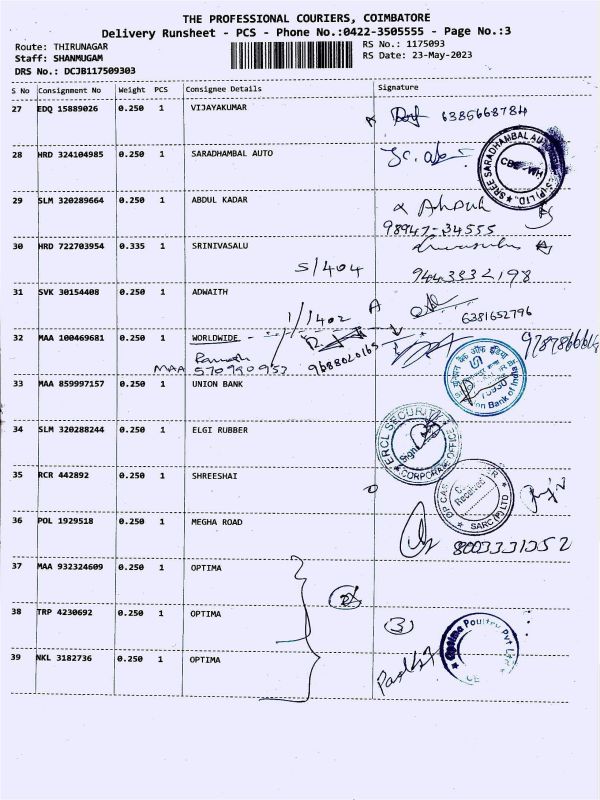 THE PROFESSIONAL COURIERS, COIMBATORE
Delivery Runsheet - PCS - Phone No.:0422-3505555 - Page No.:3
Route: THIRUNAGAR RS No.: 1175093
Staff: SHANMUGAM RS Date: 23-May-2023
DRS No.: DCJB117509303
S No Consignment No Weight PCS Consignee Details Signature
27 EDQ 15889026 0.250 1 VIJAYAKUMAR 6385668784
28 HRD 324104985 0.250 1 SARADHAMBAL AUTO
SREE SARADHAMBAL AUTO (P) LTD., CBE - WH
29 SLM 320289664 0.250 1 ABDUL KADAR
98947-34555
30 HRD 722703954 0.335 1 SRINIVASALU
S/404 9443332198
31 SVK 30154408 0.250 1 ADWAITH
1/1402 A 6381652796
32 MAA 100469681 0.250 1 WORLDWIDE
Ramesh 9688020165
MAA 570790957
33 MAA 859997157 0.250 1 UNION BANK
Union Bank of India
34 SLM 320288244 0.250 1 ELGI RUBBER
ERCL SECURITY CORPORATE OFFICE
35 RCR 442892 0.250 1 SHREESHAI
Received SARC (P) LTD
36 POL 1929518 0.250 1 MEGHA ROAD
8003331352
37 MAA 932324609 0.250 1 OPTIMA
38 TRP 4230692 0.250 1 OPTIMA
3
Optima Poultry Pvt
39 NKL 3182736 0.250 1 OPTIMA